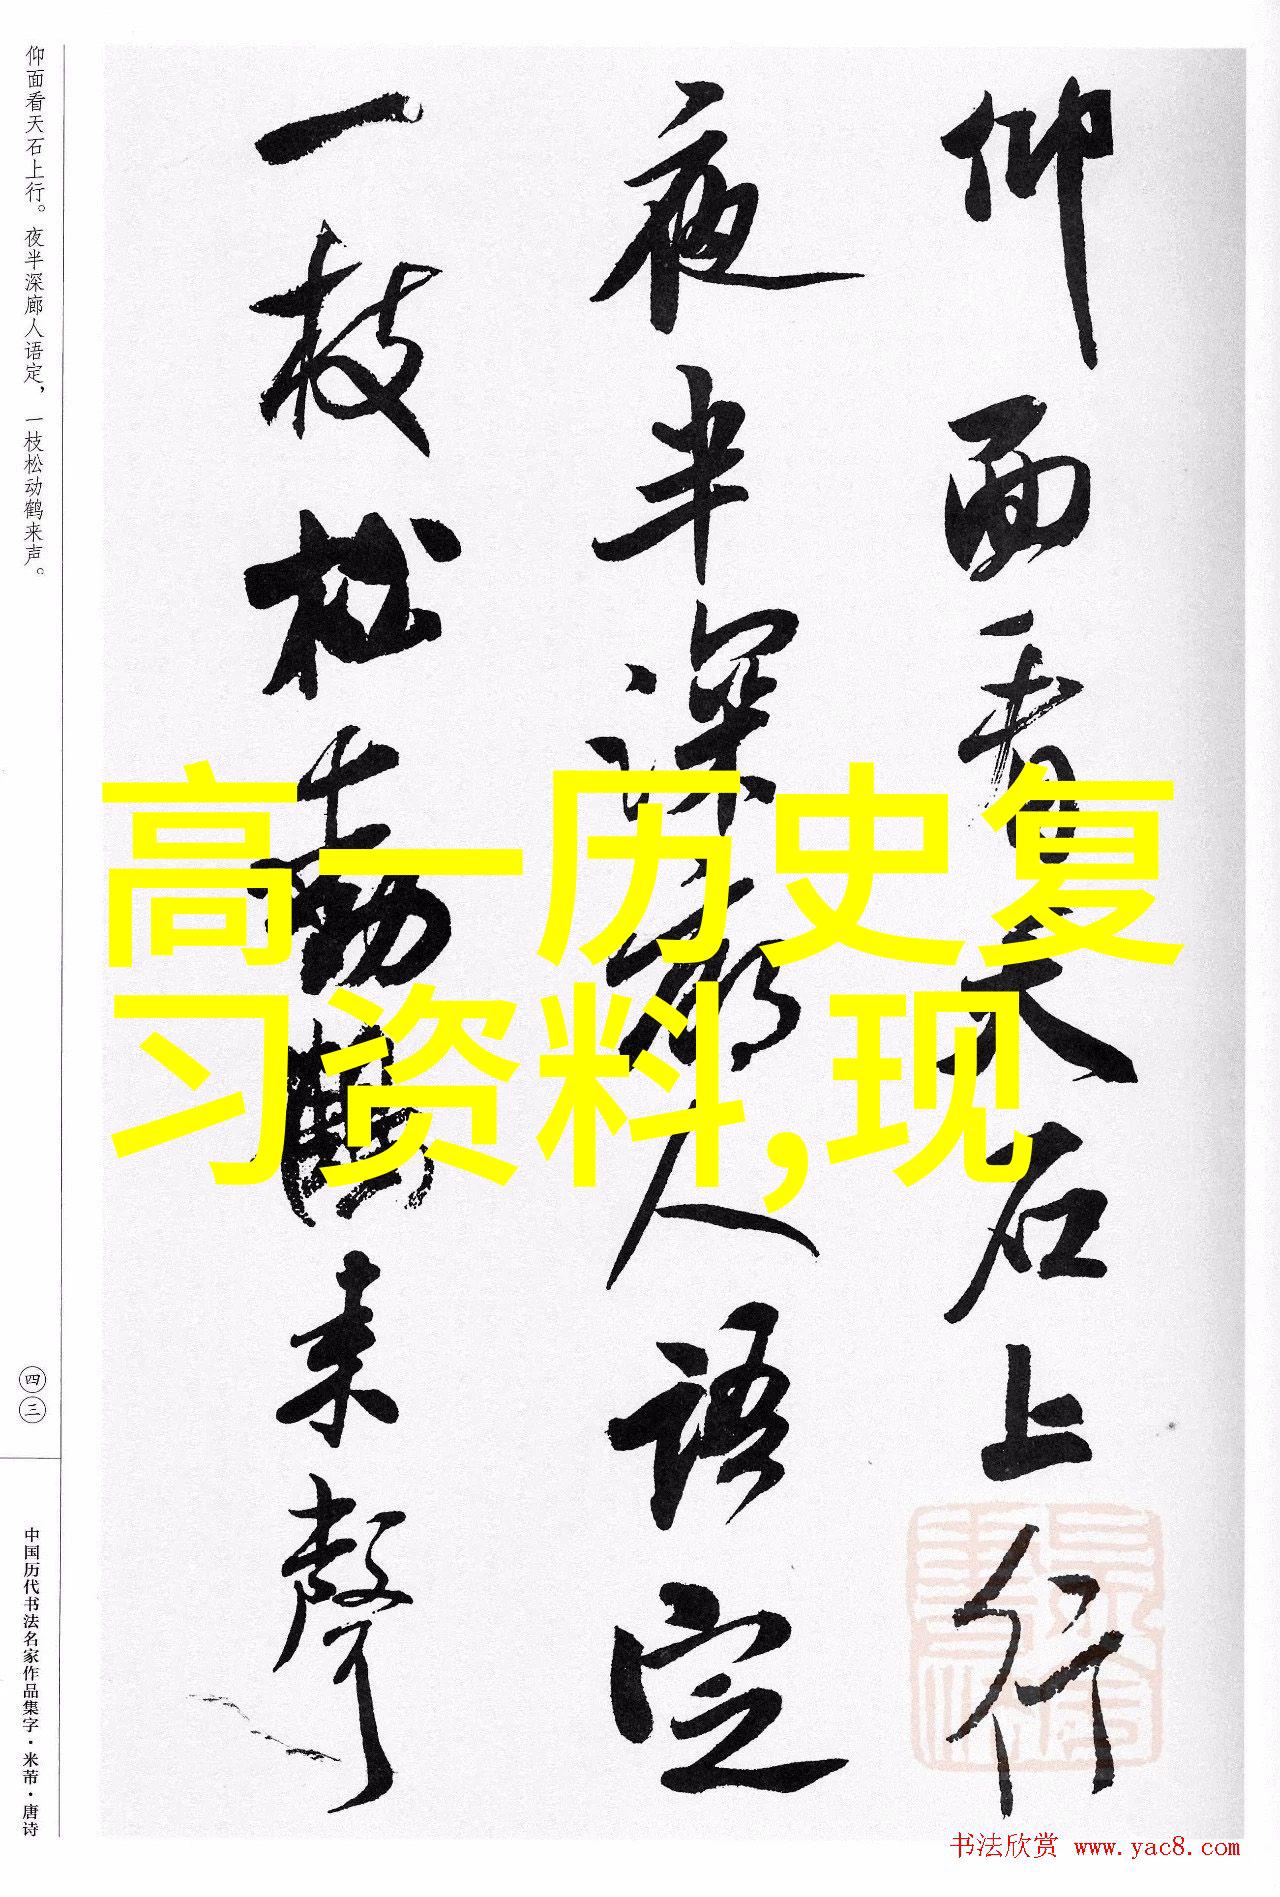 仰面看天石上行
夜半深廊人语定
一枝松动鹤来声
高一历史复
习资料,现
仰面看天石上行。夜半深廊人语定，一枝松动鹤来声。
四三
中国历代书法名家作品集字·米芾·唐诗
书法欣赏 www.yac8.com